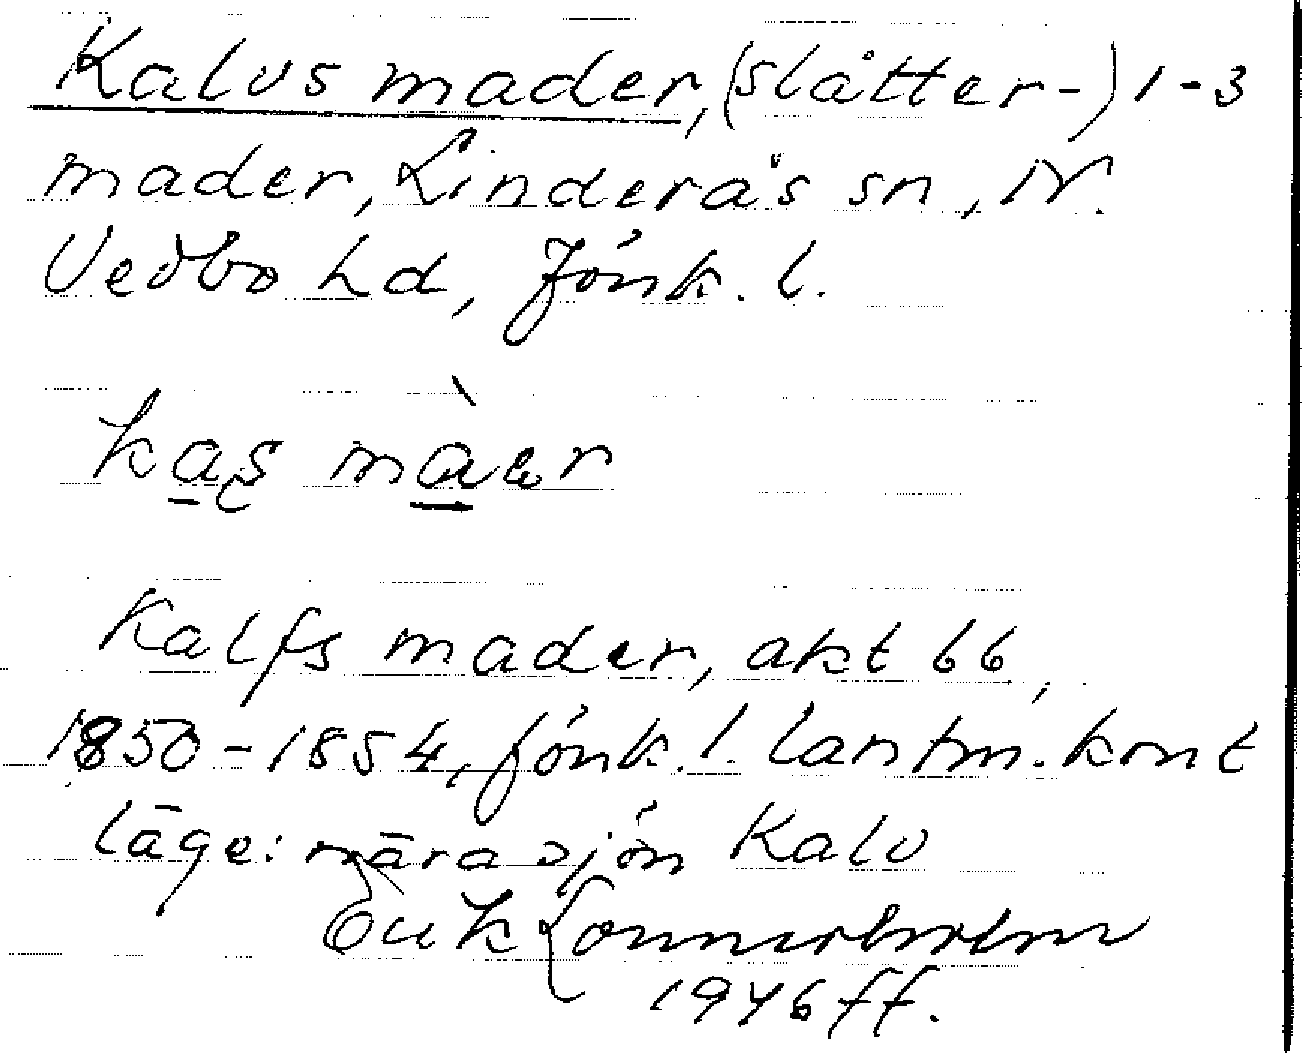 Kalvs mader, (slåtter-) 1-3
mader, Linderås sn, N.
Vedbo hd, Jönk. l.
kas màer
Kalfs mader, akt 66,
1850-1854, Jönk. l. lantm. kont
läge: nära sjön Kalv
Erik Lönnerholm
1946 ff.